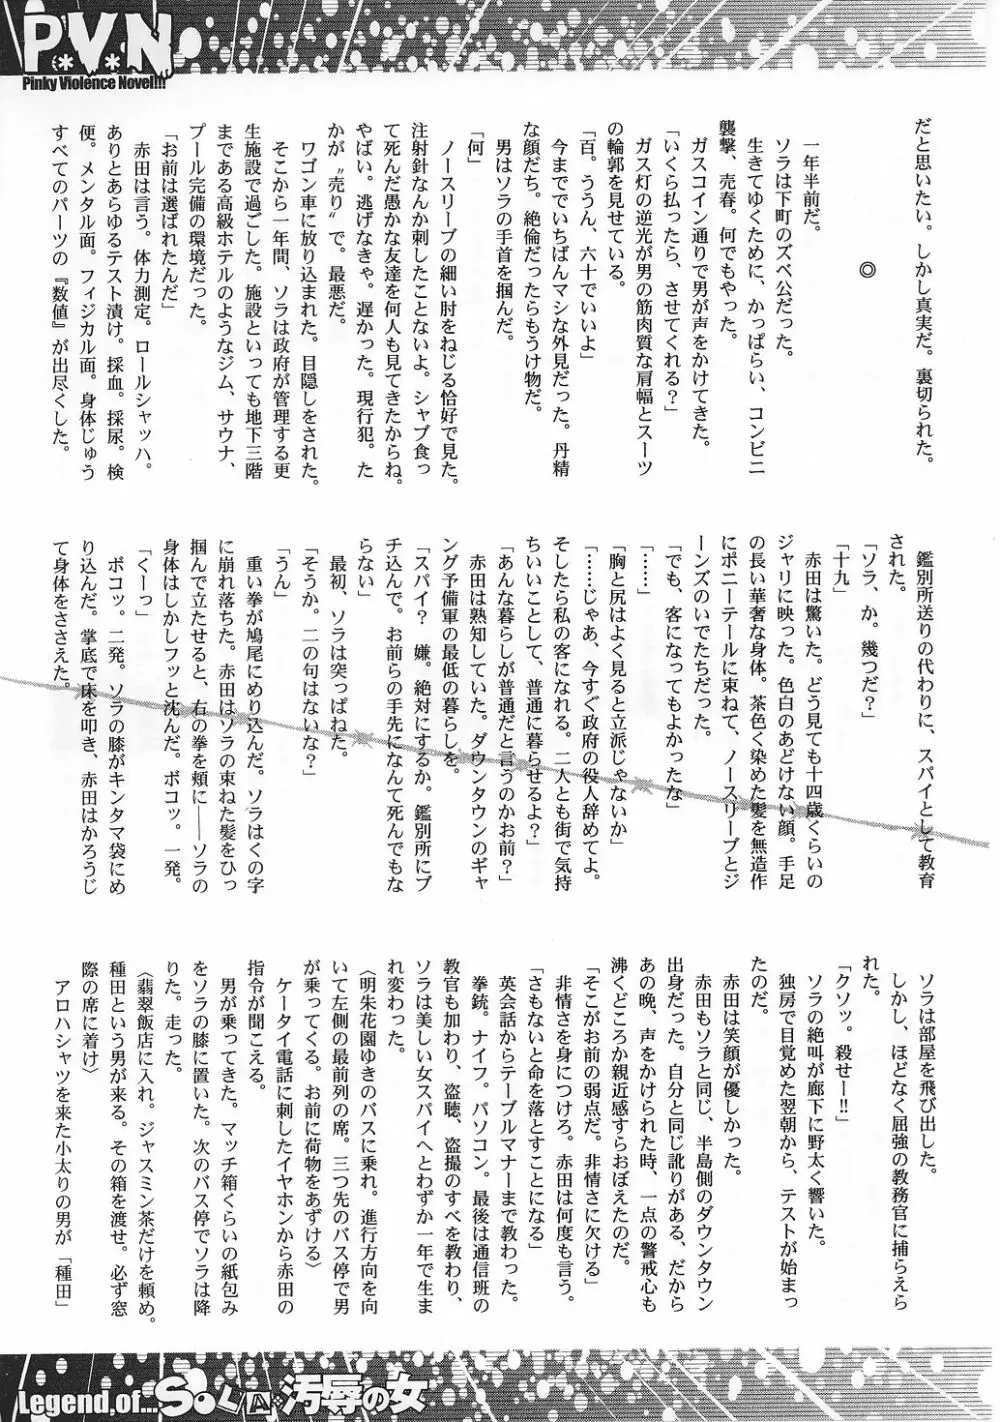 P*V*N
Pinky Violence Novel!!!
だと思いたい。しかし真実だ。裏切られた。
◎
一年半前だ。
ソラは下町のズベ公だった。
生きてゆくために、かっぱらい、コンビニ
襲撃、売春。何でもやった。
ガスコイン通りで男が声をかけてきた。
「いくら払ったら、させてくれる?」
ガス灯の逆光が男の筋肉質な肩幅とスーツ
の輪郭を見せている。
「百。ううん、六十でいいよ」
今まででいちばんマシな外見だった。丹精
な顔だち。絶倫だったらもうけ物だ。
男はソラの手首を掴んだ。
「何」
ノースリーブの細い肘をねじる恰好で見た。
注射針なんか刺したことないよ。シャブ食っ
て死んだ愚かな友達を何人も見てきたからね。
やばい。逃げなきゃ。遅かった。現行犯。た
かが〝売り〟で。最悪だ。
ワゴン車に放り込まれた。目隠しをされた。
そこから一年間、ソラは政府が管理する更
生施設で過ごした。施設といっても地下三階
まである高級ホテルのようなジム、サウナ、
プール完備の環境だった。
「お前は選ばれたんだ」
赤田は言う。体力測定。ロールシャッハ。
ありとあらゆるテスト漬け。採血。採尿。検
便。メンタル面。フィジカル面。身体じゅう
すべてのパーツの『数値』が出尽くした。
鑑別所送りの代わりに、スパイとして教育
された。
「ソラ、か。幾つだ?」
「十九」
赤田は驚いた。どう見ても十四歳くらいの
ジャリに映った。色白のあどけない顔。手足
の長い華奢な身体。茶色く染めた髪を無造作
にポニーテールに束ねて、ノースリーブとジ
ーンズのいでたちだった。
「でも、客になってもよかったな」
「……」
「胸と尻はよく見ると立派じゃないか」
「……じゃあ、今すぐ政府の役人辞めてよ。
そしたら私の客になれる。二人とも街で気持
ちいいことして、普通に暮らせるよ?」
「あんな暮らしが普通だと言うのかお前?」
赤田は熟知していた。ダウンタウンのギャ
ング予備軍の最低の暮らしを。
「スパイ? 嫌。絶対にするか。鑑別所にブ
チ込んで。お前らの手先になんて死んでもな
らない」
最初、ソラは突っぱねた。
「そうか。二の句はないな?」
「うん」
重い拳が鳩尾にめり込んだ。ソラはくの字
に崩れ落ちた。赤田はソラの束ねた髪をひっ
掴んで立たせると、右の拳を頬に――ソラの
身体はしかしフッと沈んだ。ボコッ。一発。
「くーっ」
ボコッ。二発。ソラの膝がキンタマ袋にめ
り込んだ。掌底で床を叩き、赤田はかろうじ
て身体をささえた。
ソラは部屋を飛び出した。
しかし、ほどなく屈強の教務官に捕らえら
れた。
「クソッ。殺せー!!」
ソラの絶叫が廊下に野太く響いた。
独房で目覚めた翌朝から、テストが始まっ
たのだ。
赤田は笑顔が優しかった。
赤田もソラと同じ、半島側のダウンタウン
出身だった。自分と同じ訛りがある、だから
あの晩、声をかけられた時、一点の警戒心も
沸くどころか親近感すらおぼえたのだ。
「そこがお前の弱点だ。非情さに欠ける」
非情さを身につけろ。赤田は何度も言う。
「さもないと命を落とすことになる」
英会話からテーブルマナーまで教わった。
拳銃。ナイフ。パソコン。最後は通信班の
教官も加わり、盗聴、盗撮のすべを教わり、
ソラは美しい女スパイへとわずか一年で生ま
れ変わった。
〈明朱花園ゆきのバスに乗れ。進行方向を向
いて左側の最前列の席。三つ先のバス停で男
が乗ってくる。お前に荷物をあずける〉
ケータイ電話に刺したイヤホンから赤田の
指令が聞こえる。
男が乗ってきた。マッチ箱くらいの紙包み
をソラの膝に置いた。次のバス停でソラは降
りた。走った。
〈翡翠飯店に入れ。ジャスミン茶だけを頼め。
種田という男が来る。その箱を渡せ。必ず窓
際の席に着け〉
アロハシャツを来た小太りの男が「種田」
Legend of... SOLA 汚辱の女